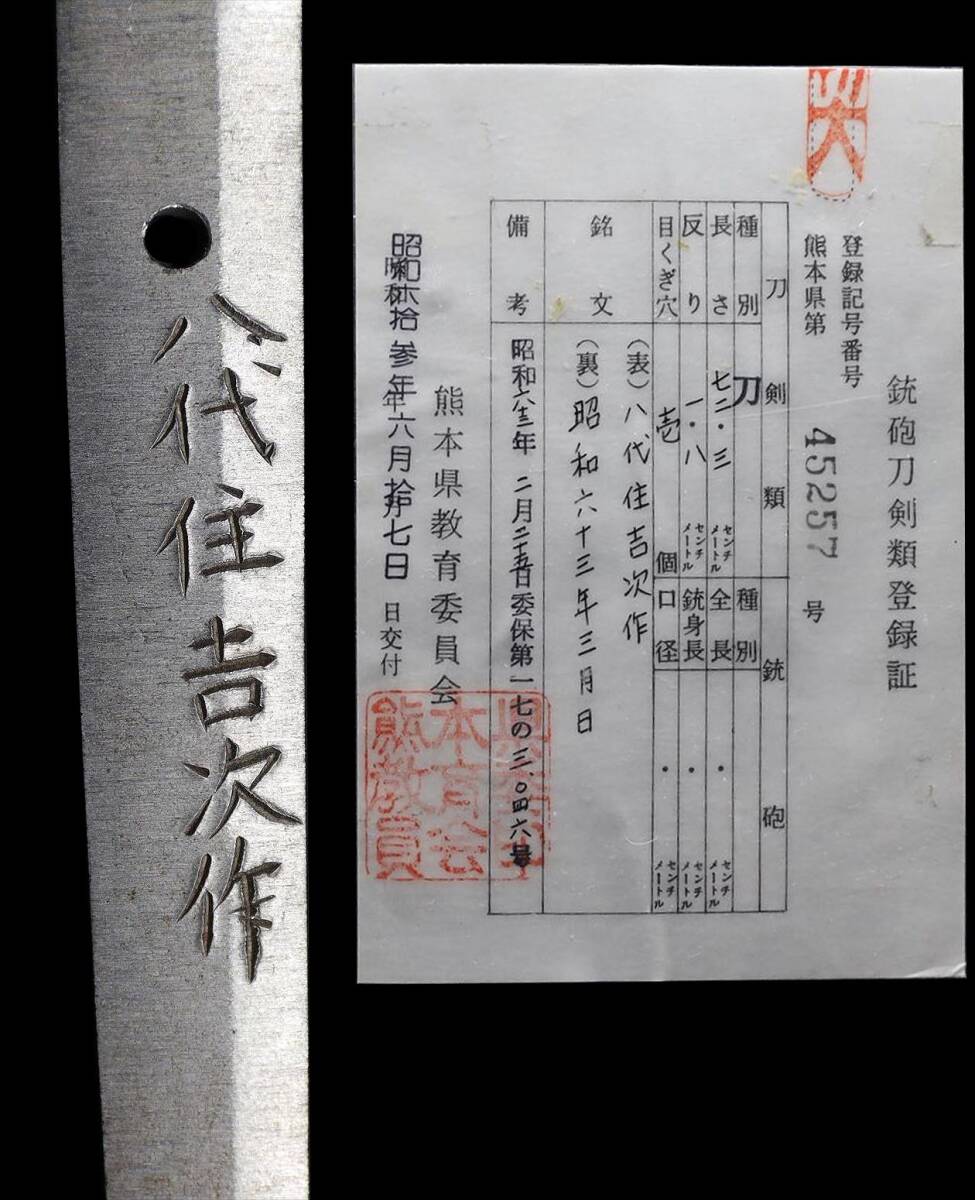 八代住吉次作
銃砲刀剣類登録証
登録記号番号
熊本県第 45257 号
刀剣類 銃砲
種別 刀 種別
長さ 七二・三 センチメートル 全長 ・ センチメートル
反り 一・八 センチメートル 銃身長 ・ センチメートル
目くぎ穴 壱 個 口径 ・ センチメートル
銘文 (表)八代住吉次作
(裏)昭和六十三年三月日
備考 昭和六三年 二月二十五日委保第一七の三〇四六号
熊本県教育委員会
昭和六拾参年六月拾七日 日交付
熊本県教育委員会